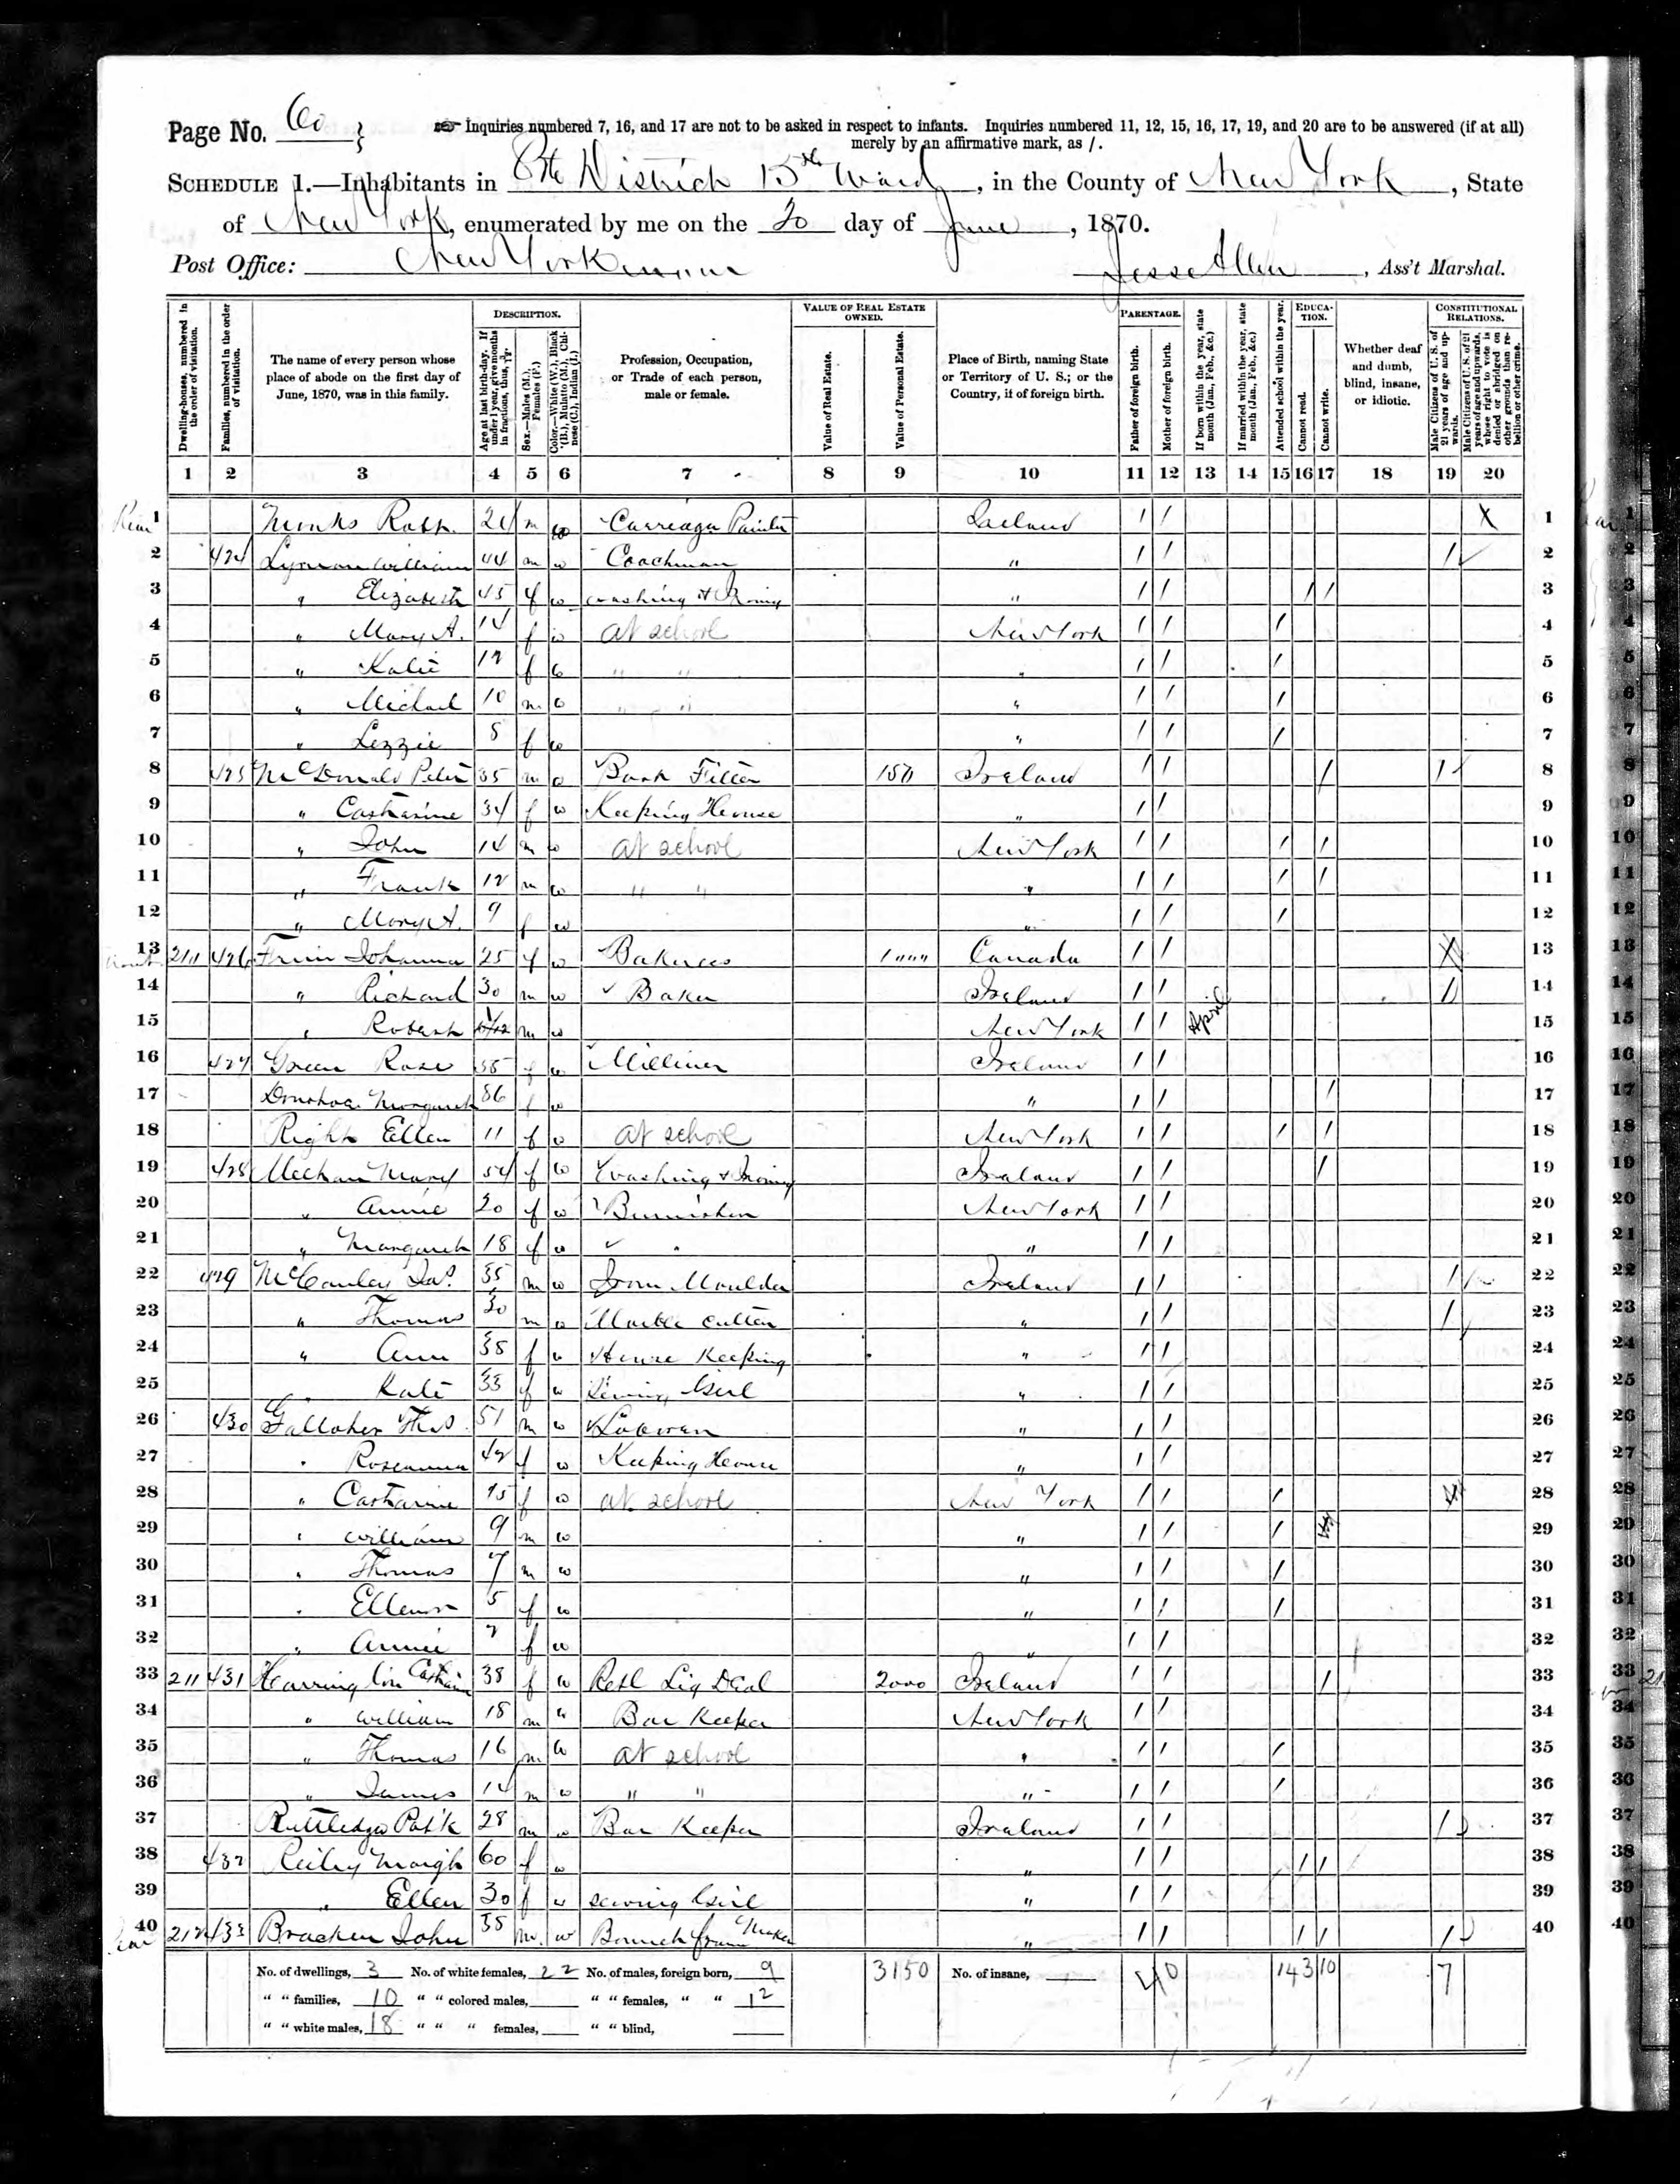 Page No. 60 } Inquiries numbered 7, 16, and 17 are not to be asked in respect to infants. Inquiries numbered 11, 12, 15, 16, 17, 19, and 20 are to be answered (if at all)
merely by an affirmative mark, as /.
SCHEDULE 1.—Inhabitants in 8th District 15th Ward, in the County of New York, State
of New York, enumerated by me on the 20 day of June, 1870.
Post Office: New York
Jesse Allen, Ass't Marshal.
Dwelling-houses, numbered in the order of visitation.
Families, numbered in the order of visitation.
The name of every person whose place of abode on the first day of June, 1870, was in this family.
DESCRIPTION.
Age at last birth-day. If under 1 year, give months in fractions, thus, 3/12.
Sex.—Males (M.), Females (F.)
Color.—White (W.), Black (B.), Mulatto (M.), Chinese (C.), Indian (I.)
Profession, Occupation, or Trade of each person, male or female.
VALUE OF REAL ESTATE OWNED.
Value of Real Estate.
Value of Personal Estate.
Place of Birth, naming State or Territory of U. S.; or the Country, if of foreign birth.
PARENTAGE.
Father of foreign birth.
Mother of foreign birth.
If born within the year, state month (Jan., Feb., &c.)
If married within the year, state month (Jan., Feb., &c.)
Attended school within the year.
EDUCATION.
Cannot read.
Cannot write.
Whether deaf and dumb, blind, insane, or idiotic.
CONSTITUTIONAL RELATIONS.
Male Citizens of U. S. of 21 years of age and upwards.
Male Citizens of U. S. of 21 years of age and upwards, whose right to vote is denied or abridged on other grounds than rebellion or other crime.
1 2 3 4 5 6 7 8 9 10 11 12 13 14 15 16 17 18 19 20
Rear 1 m w Carriage Painter Ireland / / X 1
2 424 Lyman William 44 m w Coachman " / / / 2
3 " Elizabeth 45 f w washing & Ironing " / / / / 3
4 " Mary A. 14 f w at school New York / / / 4
5 " Katie 12 f w " " " / / / 5
6 " Michael 10 m w " " " / / / 6
7 " Lizzie 8 f w " / / / 7
8 425 McDonald Peter 35 m w 150 Ireland / / / / 8
9 " Catharine 34 f w Keeping House " / / 9
10 " John 14 m w at school New York / / / / 10
11 " Frank 12 m w " " " / / / / 11
12 " Mary A. 9 f w " / / / 12
13 210 426 Johanna 25 f w Bakeress 1000 Canada / / X 13
14 " Richard 30 m w Baker Ireland / / / 14
15 " Robert m w New York / / April 15
16 427 Green Rose f w Milliner Ireland / / 16
17 Donohoe Margaret 86 f w " / / / 17
18 Right Ellen 11 f w at school New York / / / / 18
19 428 Meehan Mary 54 f w Washing & Ironing Ireland / / / 19
20 " Annie 20 f w Burnisher New York / / 20
21 " Margaret 18 f w " " / / 21
22 429 McCauley Jas. 35 m w Iron Moulder Ireland / / / 22
23 " Thomas 30 m w Marble Cutter " / / / 23
24 " Ann 38 f w House Keeping " / / 24
25 " Kate 33 f w Sewing Girl " / / 25
26 430 Gallaher Thos. 51 m w " / / 26
27 " Roseanna 42 f w Keeping House " / / 27
28 " Catharine 15 f w at school New York / / / X 28
29 " William 9 m w " / / / 29
30 " Thomas 7 m w " / / / 30
31 " Ellenor 5 f w " / / / 31
32 " Annie 2 f w " / / 32
33 211 431 Harrington Catharine 38 f w Retl Liq Deal 2000 Ireland / / / 33
34 " William 18 m w Bar Keeper New York / / 34
35 " Thomas 16 m w at school " / / / 35
36 " James 14 m w " " " / / / 36
37 Ruttledge Patk 28 m w Bar Keeper Ireland / / / 37
38 432 Reiley Margt 60 f w " / / / / 38
39 " Ellen 30 f w sewing Girl " / / 39
40 212 433 Bracken John 35 m w Bonnet frame Maker " / / / / / 40
No. of dwellings, 3 No. of white females, 22 No. of males, foreign born, 9 3150 No. of insane, 40 14 3 10 7
" " families, 10 " " colored males, " " females, " " 12
" " white males, 18 " " " females, " " blind,